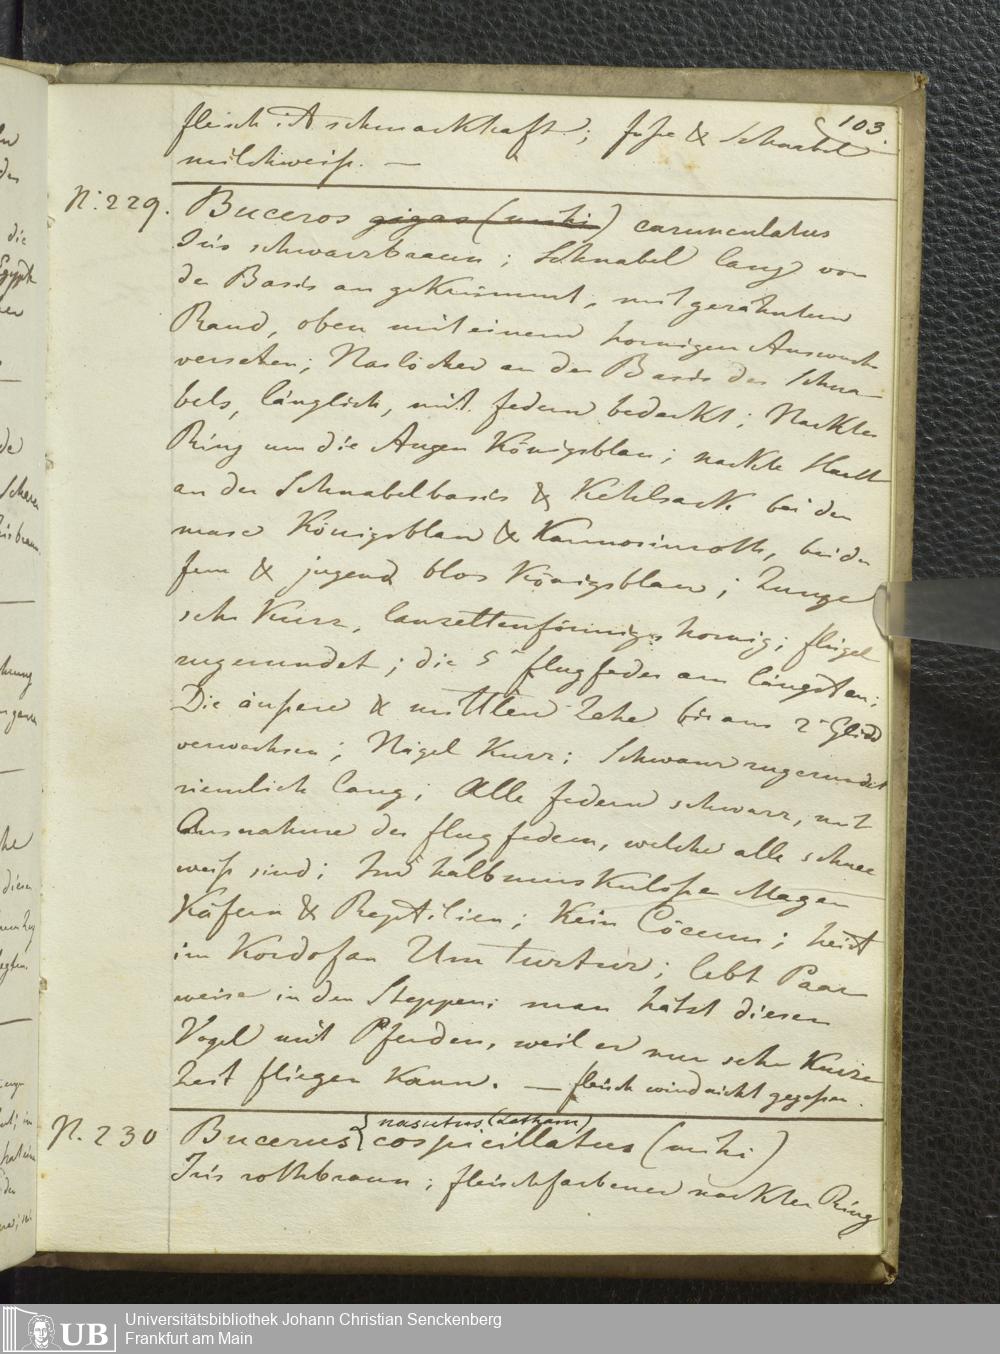 103.
fleisch ist schmackhaft; füße & Schnabel
milchweiß. —
N: 229. Buceros gigas (mihi) carunculatus
Iris schwarzbraun; Schnabel lang von
der Basis an gekrümmt, mit gezähntem
Rand, oben mit einem hornigen Auswuchs
versehen; Naslöcher an der Basis des Schna-
bels, länglich, mit federn bedeckt; Nackter
Ring um die Augen Königsblau; nackte Haut
an der Schnabelbasis & Kehlsack bei den
masc Königsblau & Karmosinroth, bei den
fem & jugend blos Königsblau; Zunge
sehr Kurz, lanzettenförmig, hornig; flügel
zugerundet; die 5 flugfeder am längsten;
Die äußere & mittlere Zehe bis ans 2 Glied
verwachsen; Nägel Kurz; Schwanz zugerundet
ziemlich lang; Alle federn schwarz, mit
Ausnahme der flugfedern, welche alle schnee
weiß sind; Im halbmuskulosen Magen
Käfern & Reptilien; Kein Cöcum; heist
im Kordofan Um Turtur; lebt Paar
weise in den Steppen; man hätzt diesen
Vogel mit Pferden, weil er nur sehr Kurze
Zeit fliegen Kann. — fleisch wird nicht gegessen.
N. 230 Bucerus { nasutus (Latham)
cospicillatus (mihi)
Iris rothbraun; fleischfarbener nackter Ring
UB
Universitätsbibliothek Johann Christian Senckenberg
Frankfurt am Main